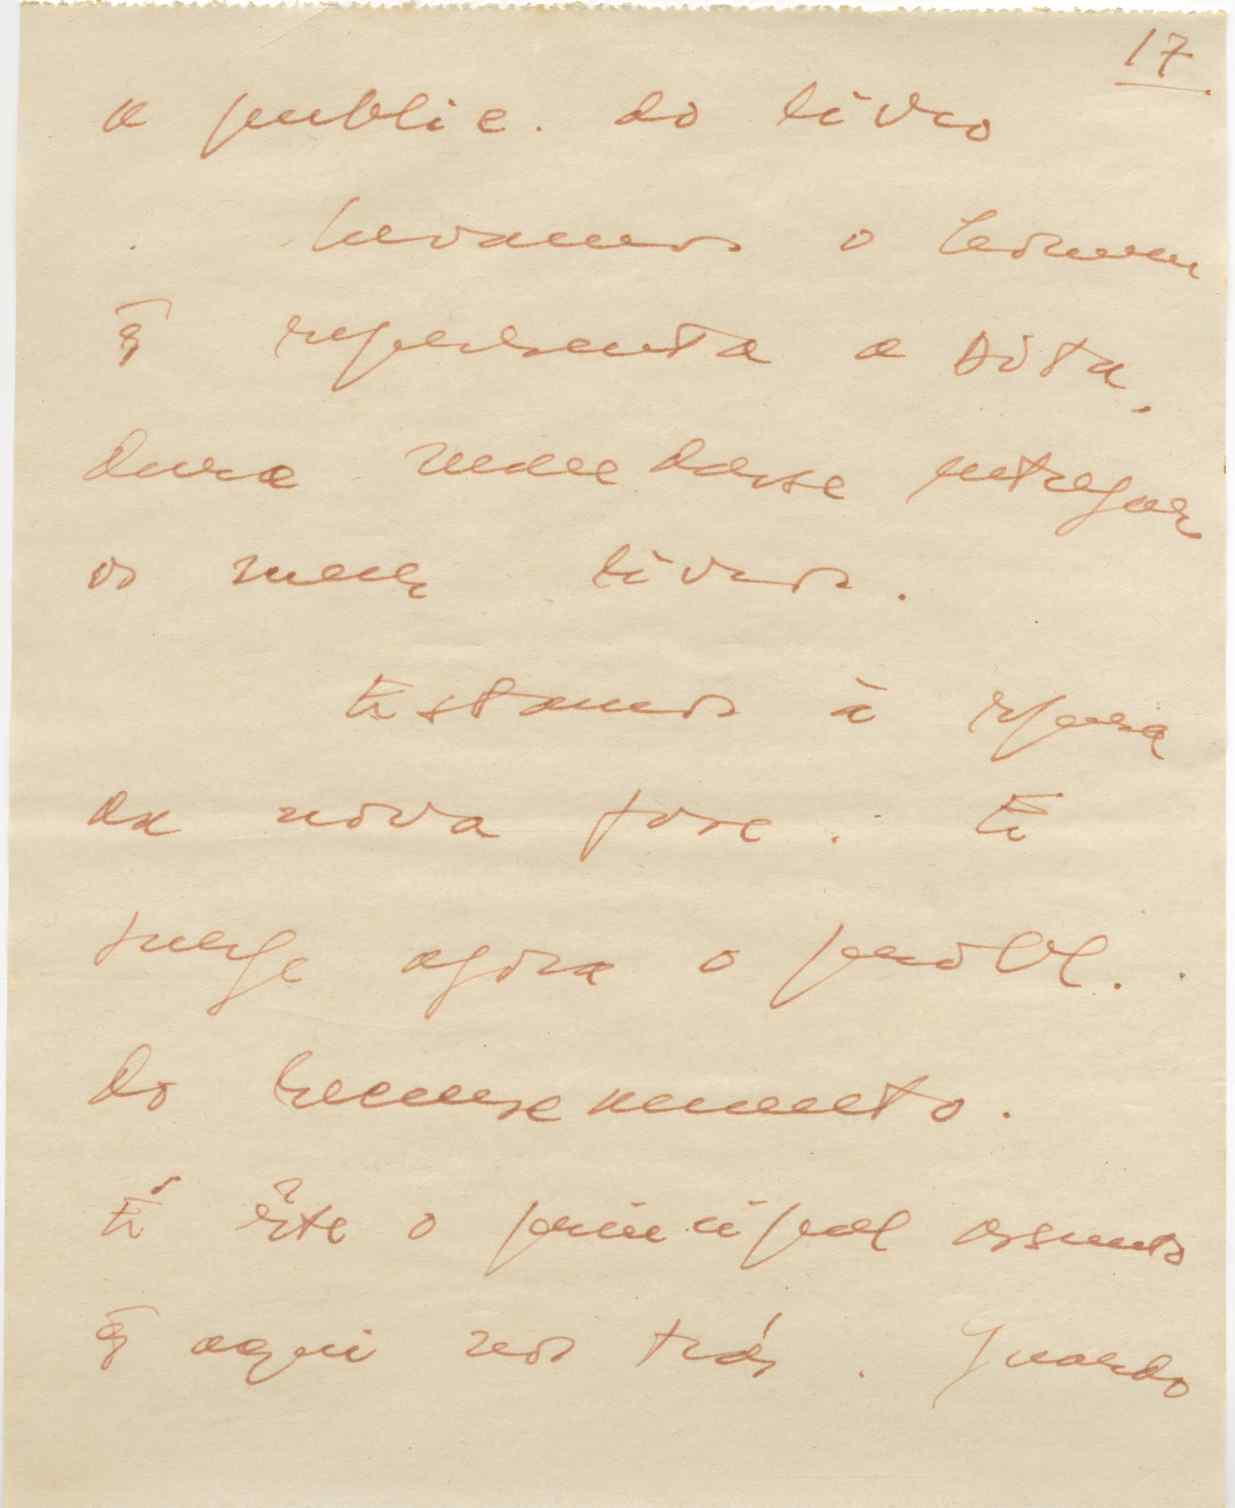 17
a public. do livro
levamos o homem
q̃ representa a dita.
dura mandasse entregar
os meus livros.
Estamos à espera
da nova fase. E
surge agora o probl.
do recenseamento.
É êste o principal assunto
q̃ aqui nos trás. Quando